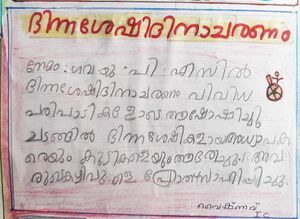 ഭിന്നശേഷിദിനാചരണം
നേമം : ഗവ : യു : പി : എസിൽ
ഭിന്നശേഷിദിനാചരണം വിവിധ
പരിപാടികളോടെ ആഘോഷിച്ചു.
ചടങ്ങിൽ ഭിന്നശേഷികളായഅധ്യാപക
രെയും കുട്ടികളെയും ആദരിച്ചു. അവ
രുടെകഴിവുകളെ പ്രോത്സാഹിപ്പിച്ചു.
വൈഷ്ണവ്
I C